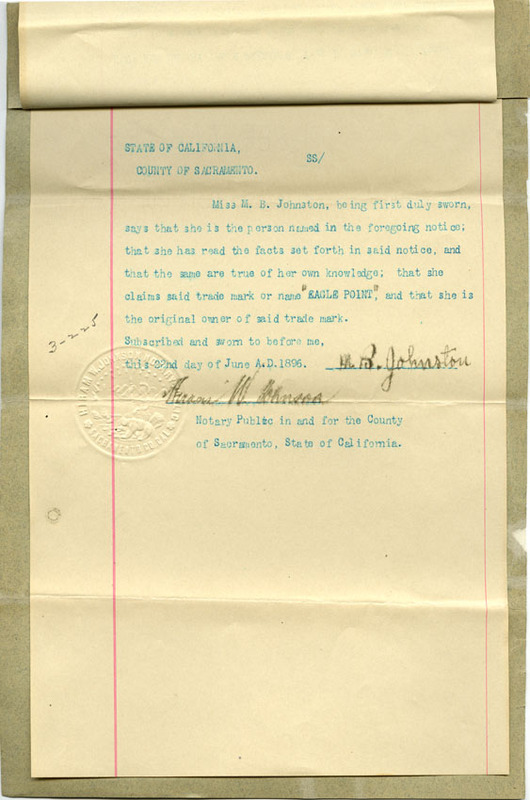 STATE OF CALIFORNIA,
SS/
COUNTY OF SACRAMENTO.
Miss M. B. Johnston, being first duly sworn,
says that she is the person named in the foregoing notice;
that she has read the facts set forth in said notice, and
that the same are true of her own knowledge; that she
claims said trade mark or name "EAGLE POINT", and that she is
the original owner of said trade mark.
Subscribed and sworn to before me,
this 22nd day of June A.D. 1896. M. B. Johnston
W. Johnson
Notary Public in and for the County
of Sacramento, State of California.
3-225